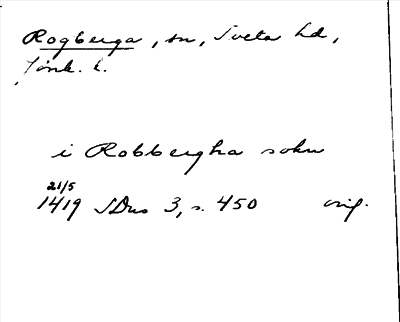 Rogberga, sn, Sveta hd,
Jönk. l.
i Robbergha sokn
21/5
1419 SDns 3, s. 450 orig.